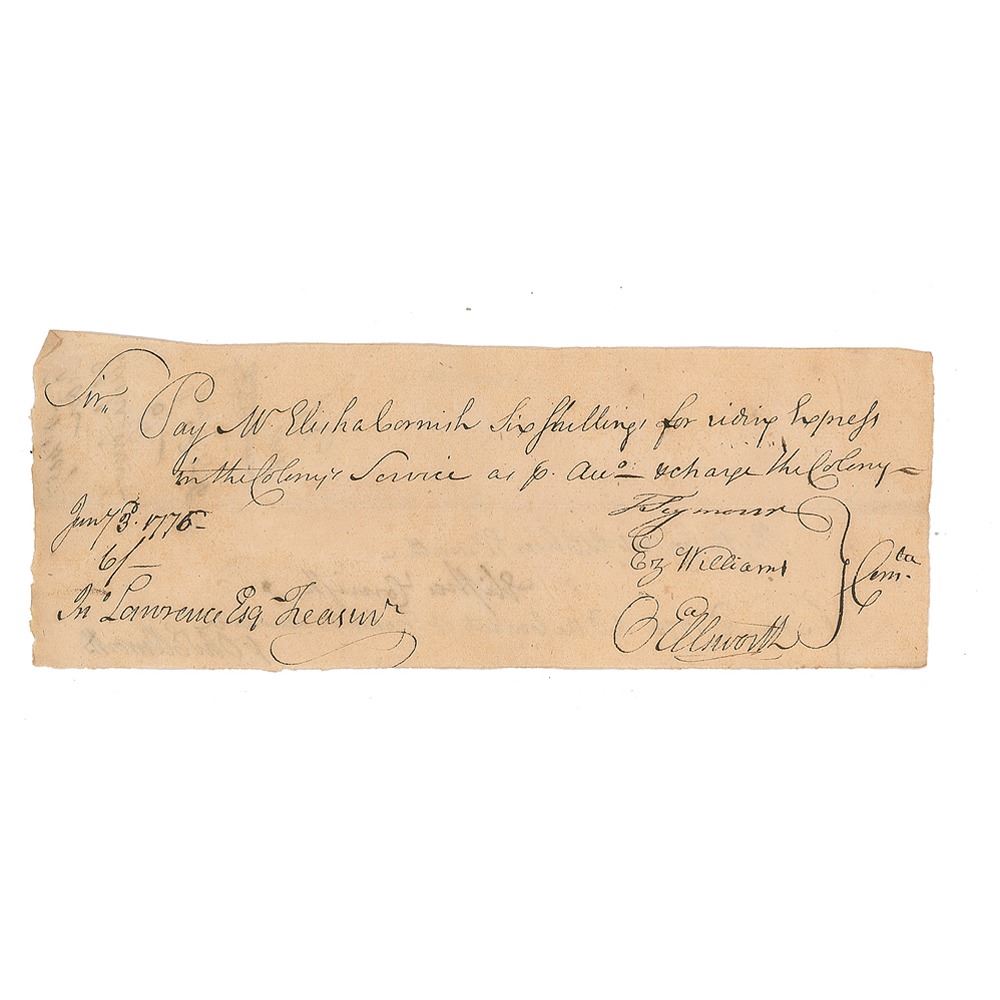 Sir,, Pay Mr Elisha Cornish Six Shillings for riding Express
in the Colony's Service as p. Acco. & charge the Colony =
T Seymour
Jany 3d. 1776
Ez Williams
Comtee
6/-
Jno Lawrence Esq Treasurr
O Ellsworth